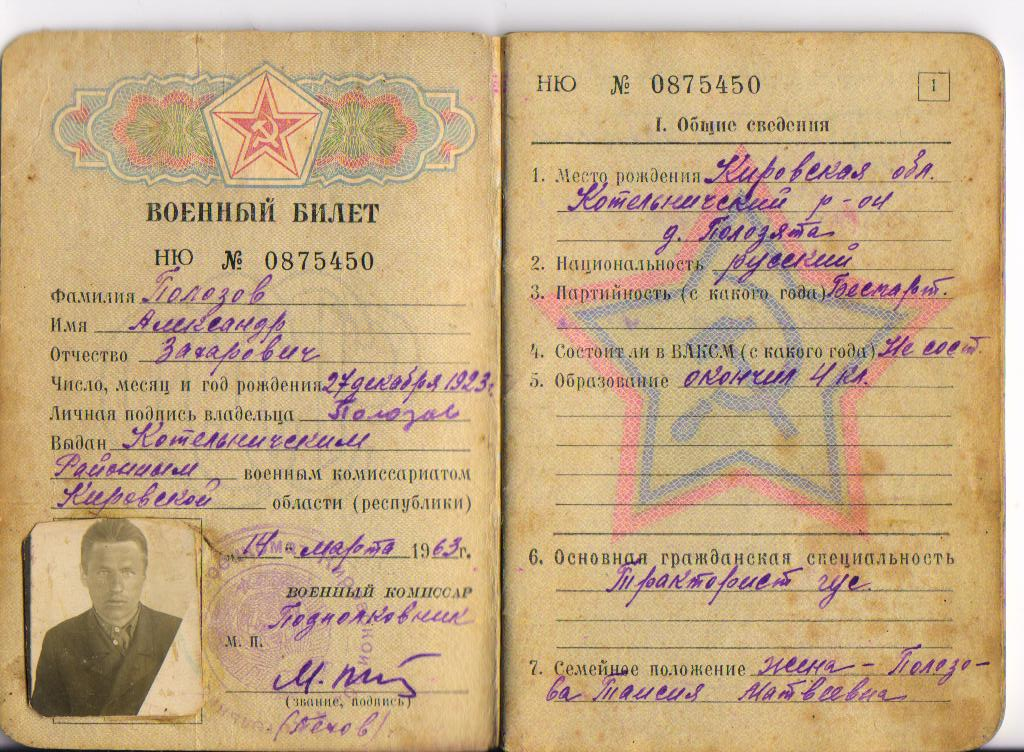 ВОЕННЫЙ БИЛЕТ
НЮ № 0875450
Фамилия Полозов
Имя Александр
Отчество Захарович
Число, месяц и год рождения 27 декабря 1923 г.
Личная подпись владельца Полозов
Выдан Котельническим
Районным военным комиссариатом
Кировской области (республики)
14 марта 1963 г.
ВОЕННЫЙ КОМИССАР
Подполковник
М. П.
(звание, подпись)
НЮ № 0875450
1
I. Общие сведения
1. Место рождения Кировская обл.
Котельничский р-он
д. Полозята
2. Национальность русский
3. Партийность (с какого года) Беспарт.
4. Состоит ли в ВЛКСМ (с какого года) Не сост.
5. Образование окончил 4 кл.
6. Основная гражданская специальность
Тракторист гус.
7. Семейное положение жена - Полозо-
ва Таисия Матвеевна